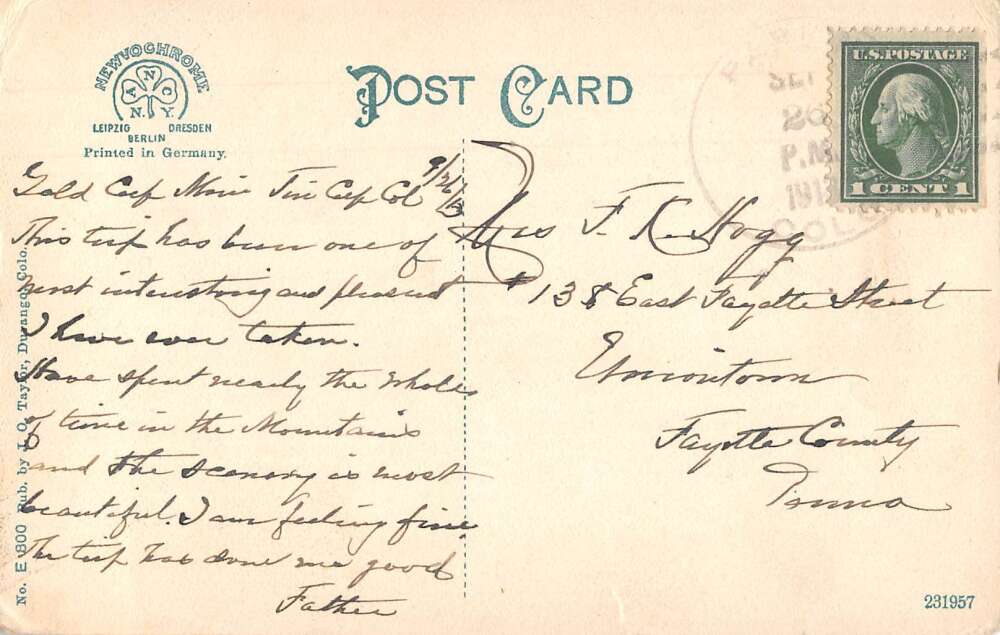 NEWVOCHROME
A N C
N. Y.
LEIPZIG DRESDEN
BERLIN
Printed in Germany.
POST CARD
U.S. POSTAGE
1 CENT 1
SEP
26
P.M.
191
COLO
Gold Cup Mine Tin Cup Col 9/26/13
This trip has been one of
most interesting and pleasant
I have ever taken.
Have spent nearly the whole
of time in the Mountains
and the scenery is most
beautiful. I am feeling fine
The trip has done me good
Father
Mrs F. K. Hogg
# 138 East Fayette Street
Uniontown
Fayette County
Penna
No. E 800 Pub. by J. O. Taylor, Durango, Colo.
231957